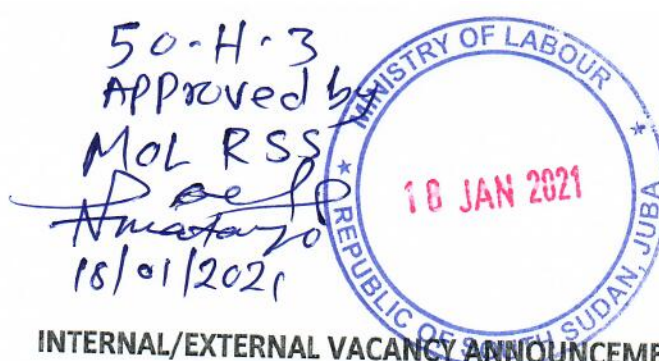 50-H-3
APProved by
MOL RSS
18/01/2021
MINISTRY OF LABOUR
18 JAN 2021
REPUBLIC OF SOUTH SUDAN, JUBA
INTERNAL/EXTERNAL VACANCY ANNOUNCEME